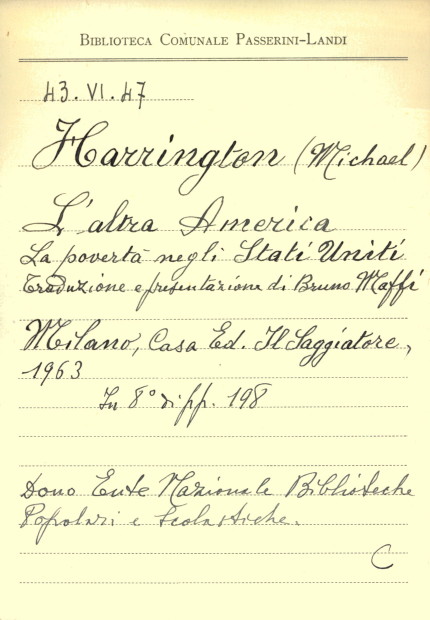 BIBLIOTECA COMUNALE PASSERINI-LANDI
43. VI. 47
Harrington (Michael)
L'altra America
La povertà negli Stati Uniti
Traduzione e presentazione di Bruno Maffi
Milano, Casa Ed. Il Saggiatore,
1963
In 8° di pp. 198
Dono Ente Nazionale Biblioteche
Popolari e Scolastiche.
C